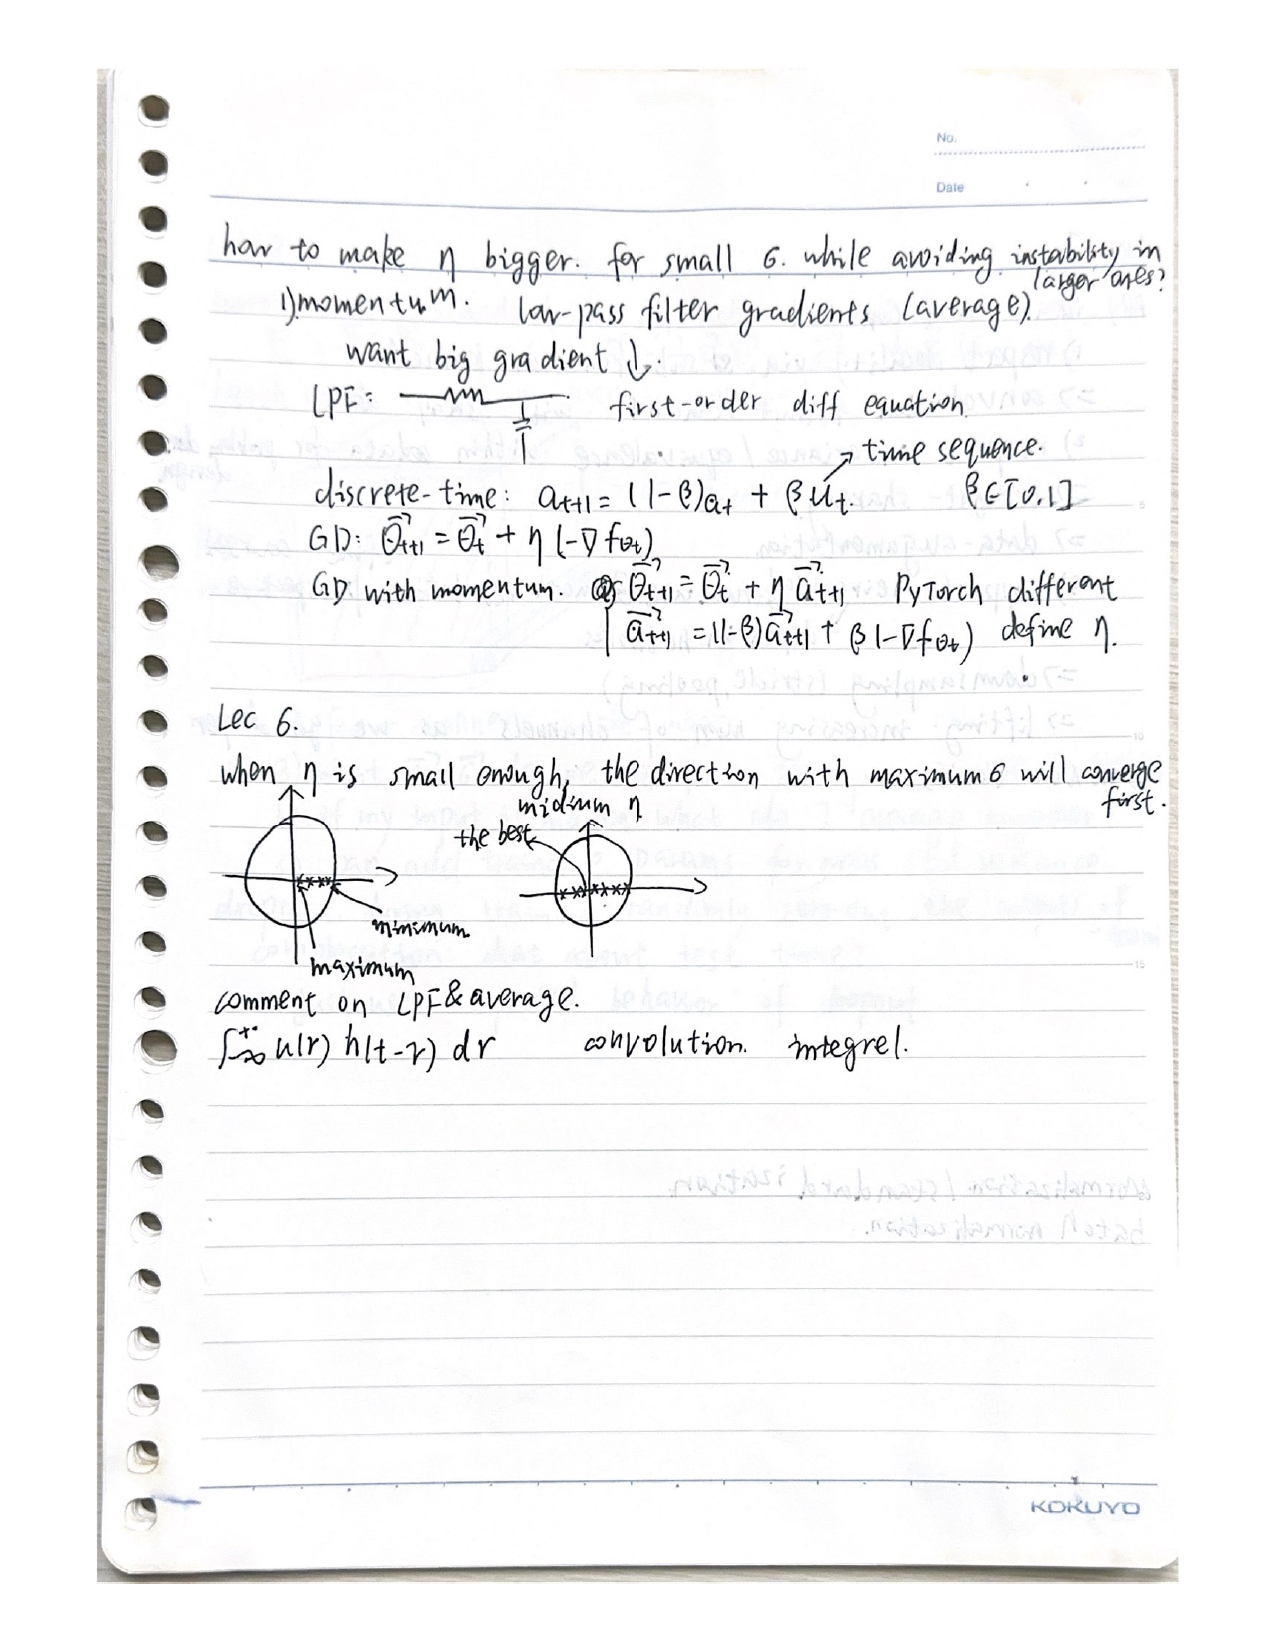 No.
Date
how to make η bigger. for small σ. while avoiding instability in
larger ones?
1) momentum. low-pass filter gradients (average).
want big gradient ↓.
LPF: first-order diff equation.
→ time sequence.
discrete-time: a_{t+1} = (1-β)a_t + β u_t. β∈[0,1]
GD: θ⃗_{t+1} = θ⃗_t + η (-∇f_{θt})
GD with momentum. θ⃗_{t+1} = θ⃗_t + η a⃗_{t+1} PyTorch different
a⃗_{t+1} = (1-β)a⃗_{t+1} + β(-∇f_{θt}) define η.
5
Lec 6.
10
when η is small enough, the direction with maximum σ will converge
first.
η
the best
minimum
maximum
15
comment on LPF & average.
∫_{-∞}^{+∞} u(τ) h(t-τ) dτ convolution. integrel.
KOKUYO